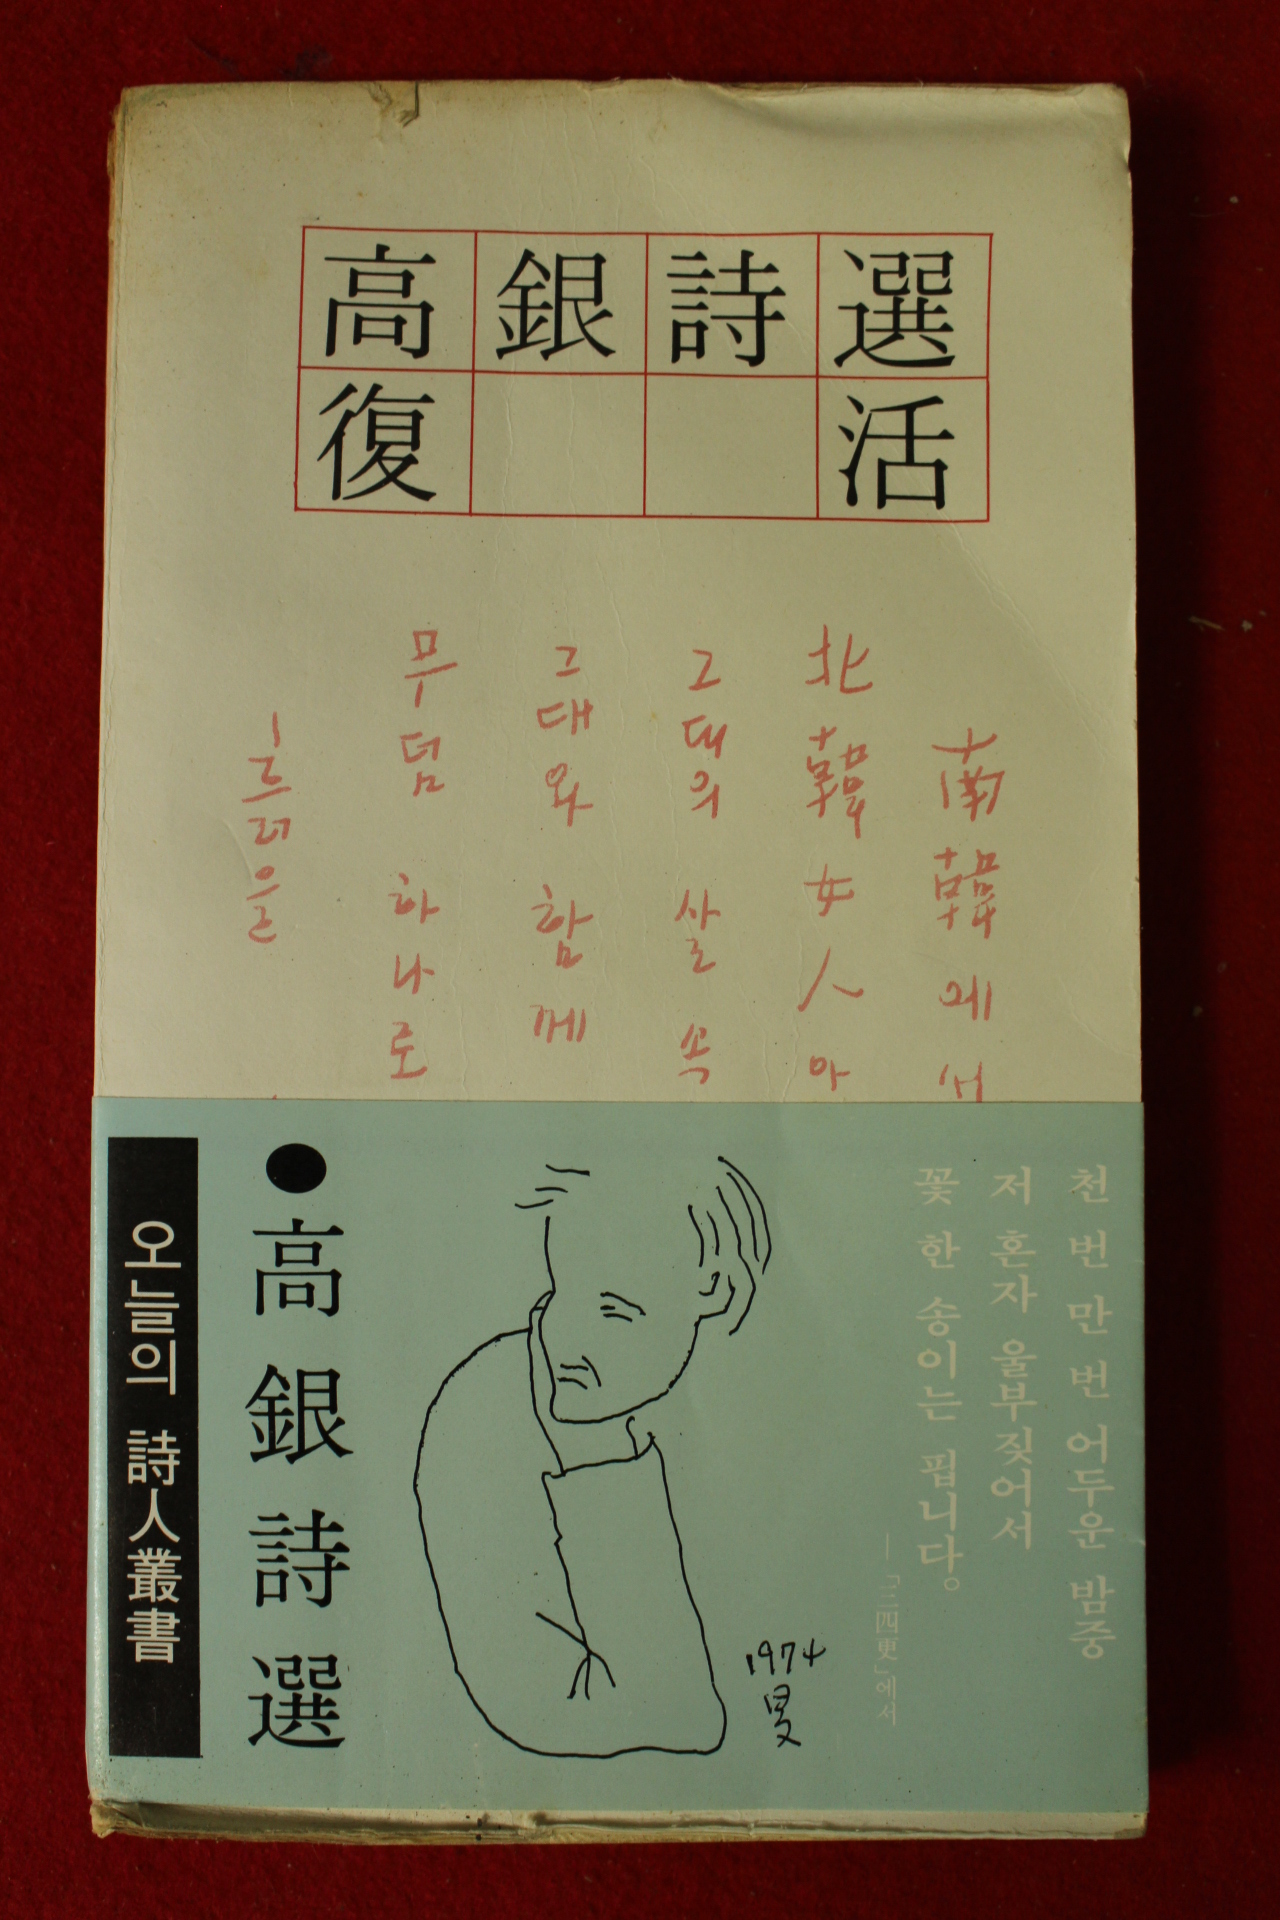 高銀詩選
復活
南韓에서
北韓女人아
그대의 살 속
그대와 함께
무덤 하나로
흐려울
천 번 만 번 어두운 밤중
저 혼자 울부짖어서
꽃 한 송이는 핍니다。
—「三四更」에서
1974
旻
●高銀詩選
오늘의 詩人叢書